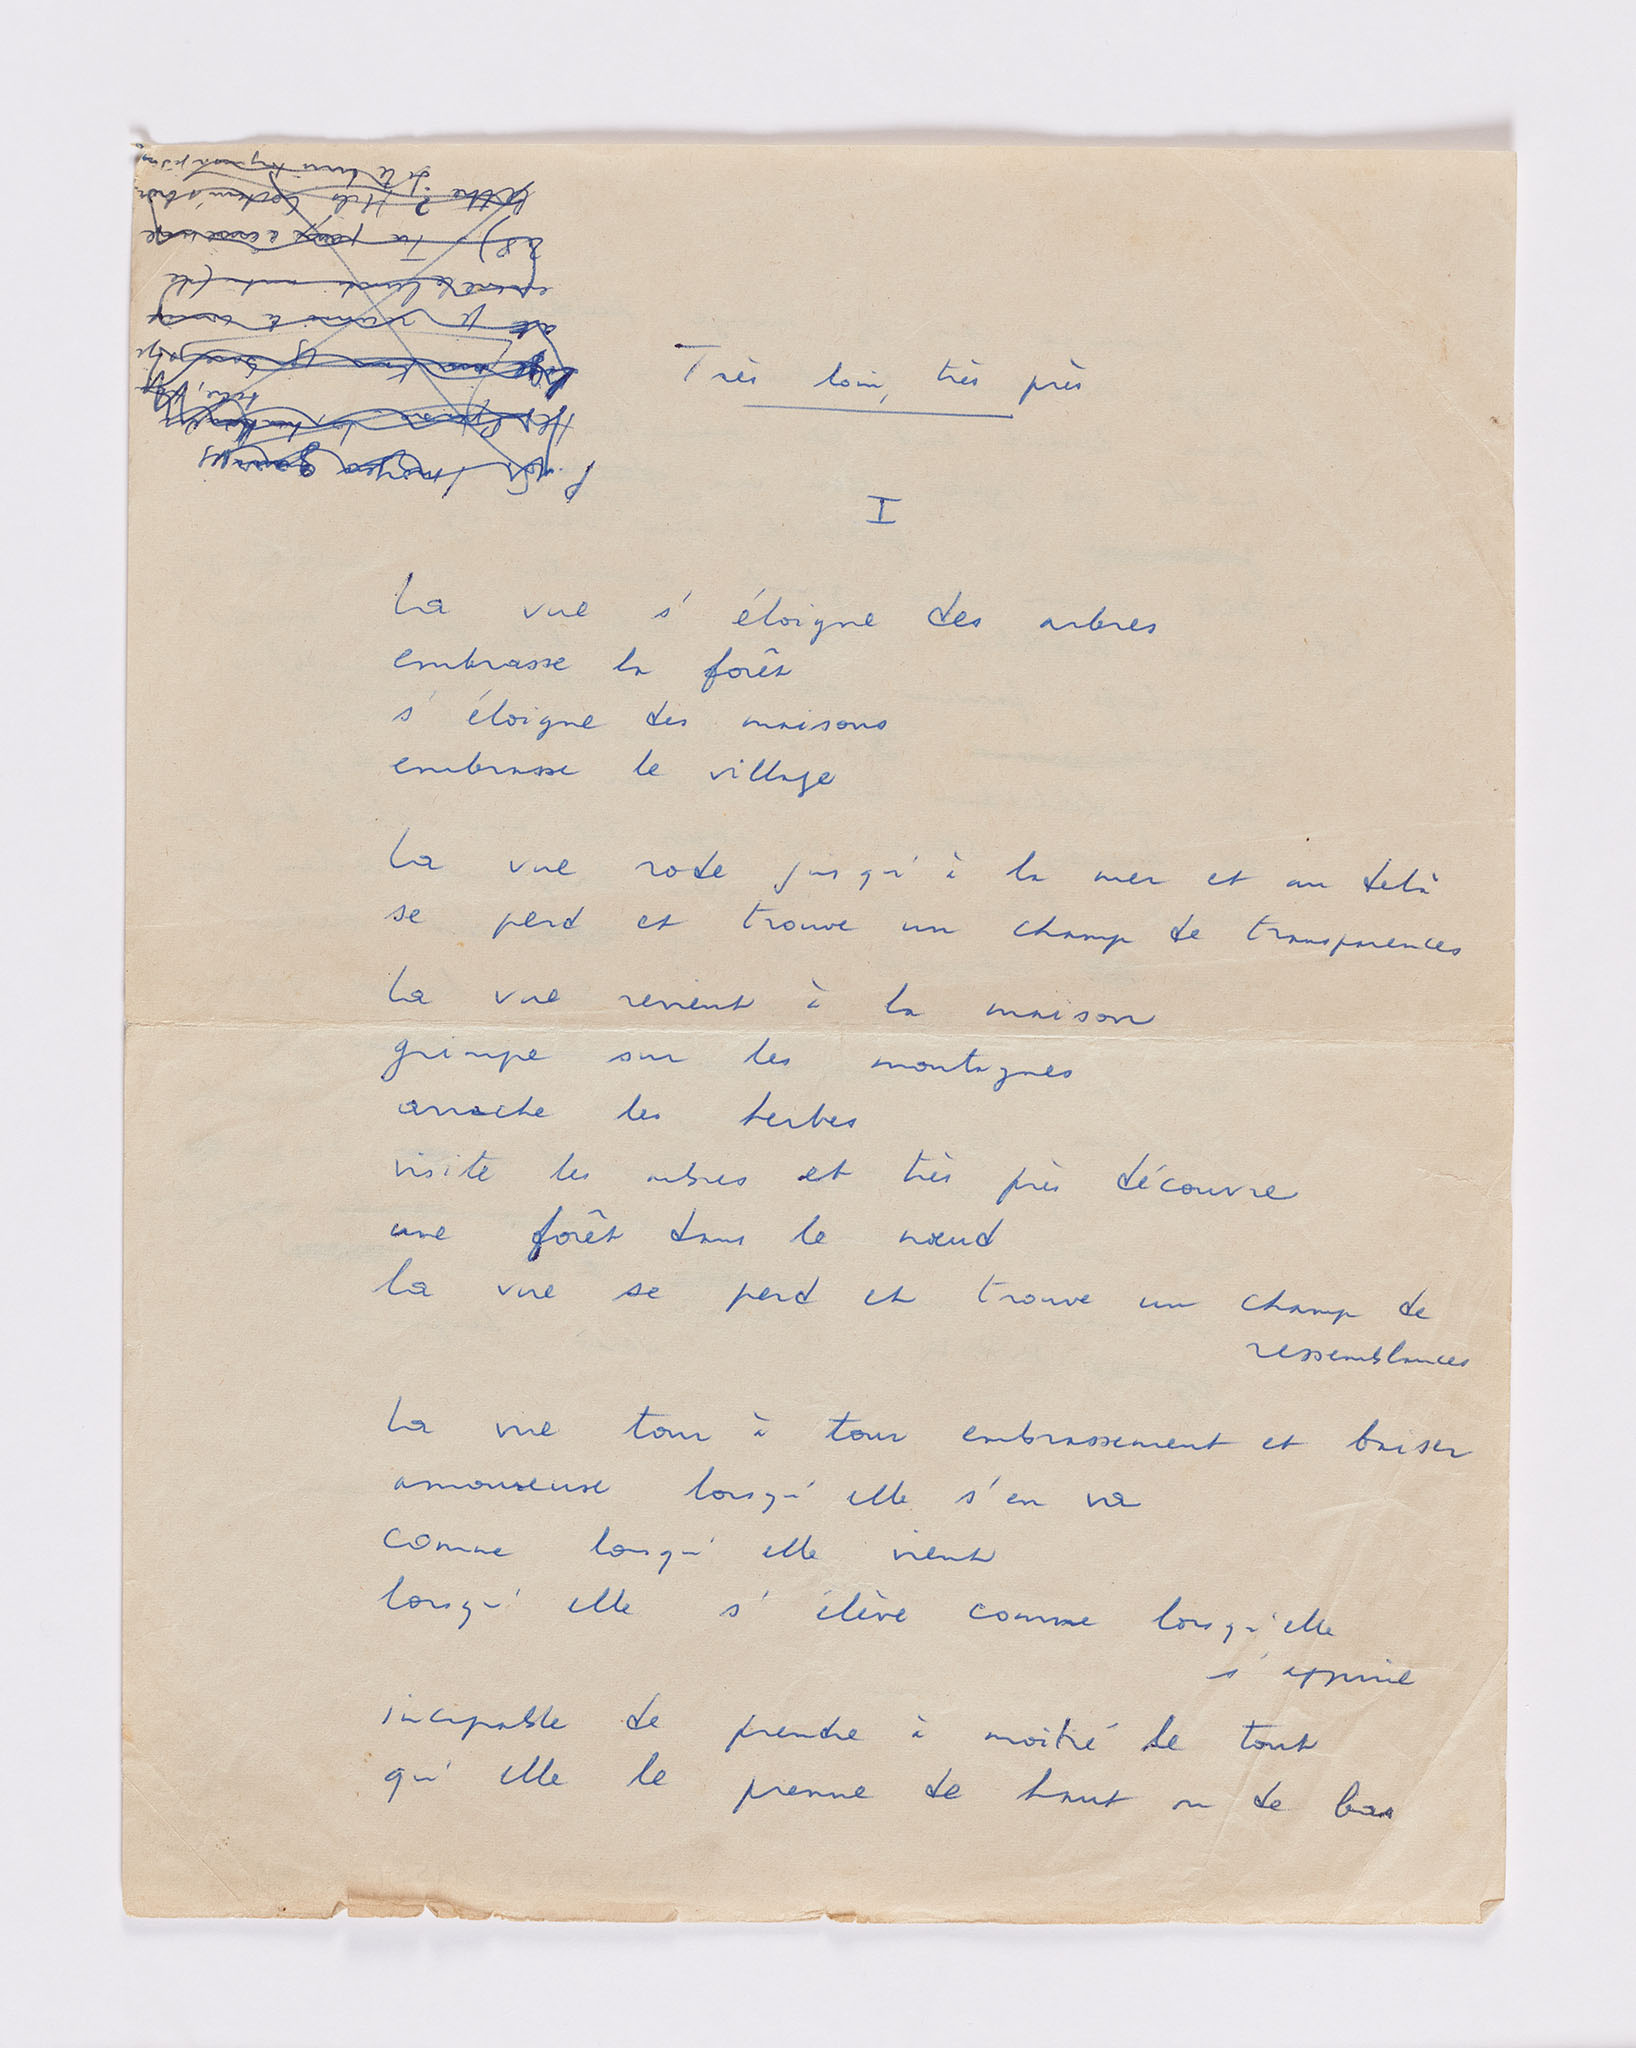 Très loin, très près
I
La vue s'éloigne des arbres
embrasse la forêt
s'éloigne des maisons
embrasse le village
La vue rode jusqu'à la mer et au delà
se perd et trouve un champ de transparences
La vue revient à la maison
grimpe sur les montagnes
arrache les herbes
visite les arbres et très près découvre
une forêt dans le nœud
La vue se perd et trouve un champ de
ressemblances
La vue tour à tour embrassement et baiser
amoureuse lorsqu'elle s'en va
comme lorsqu'elle vient
lorsqu'elle s'élève comme lorsqu'elle
s'appuie
incapable de prendre à moitié le tout
qu'elle le prenne de haut ou de bas